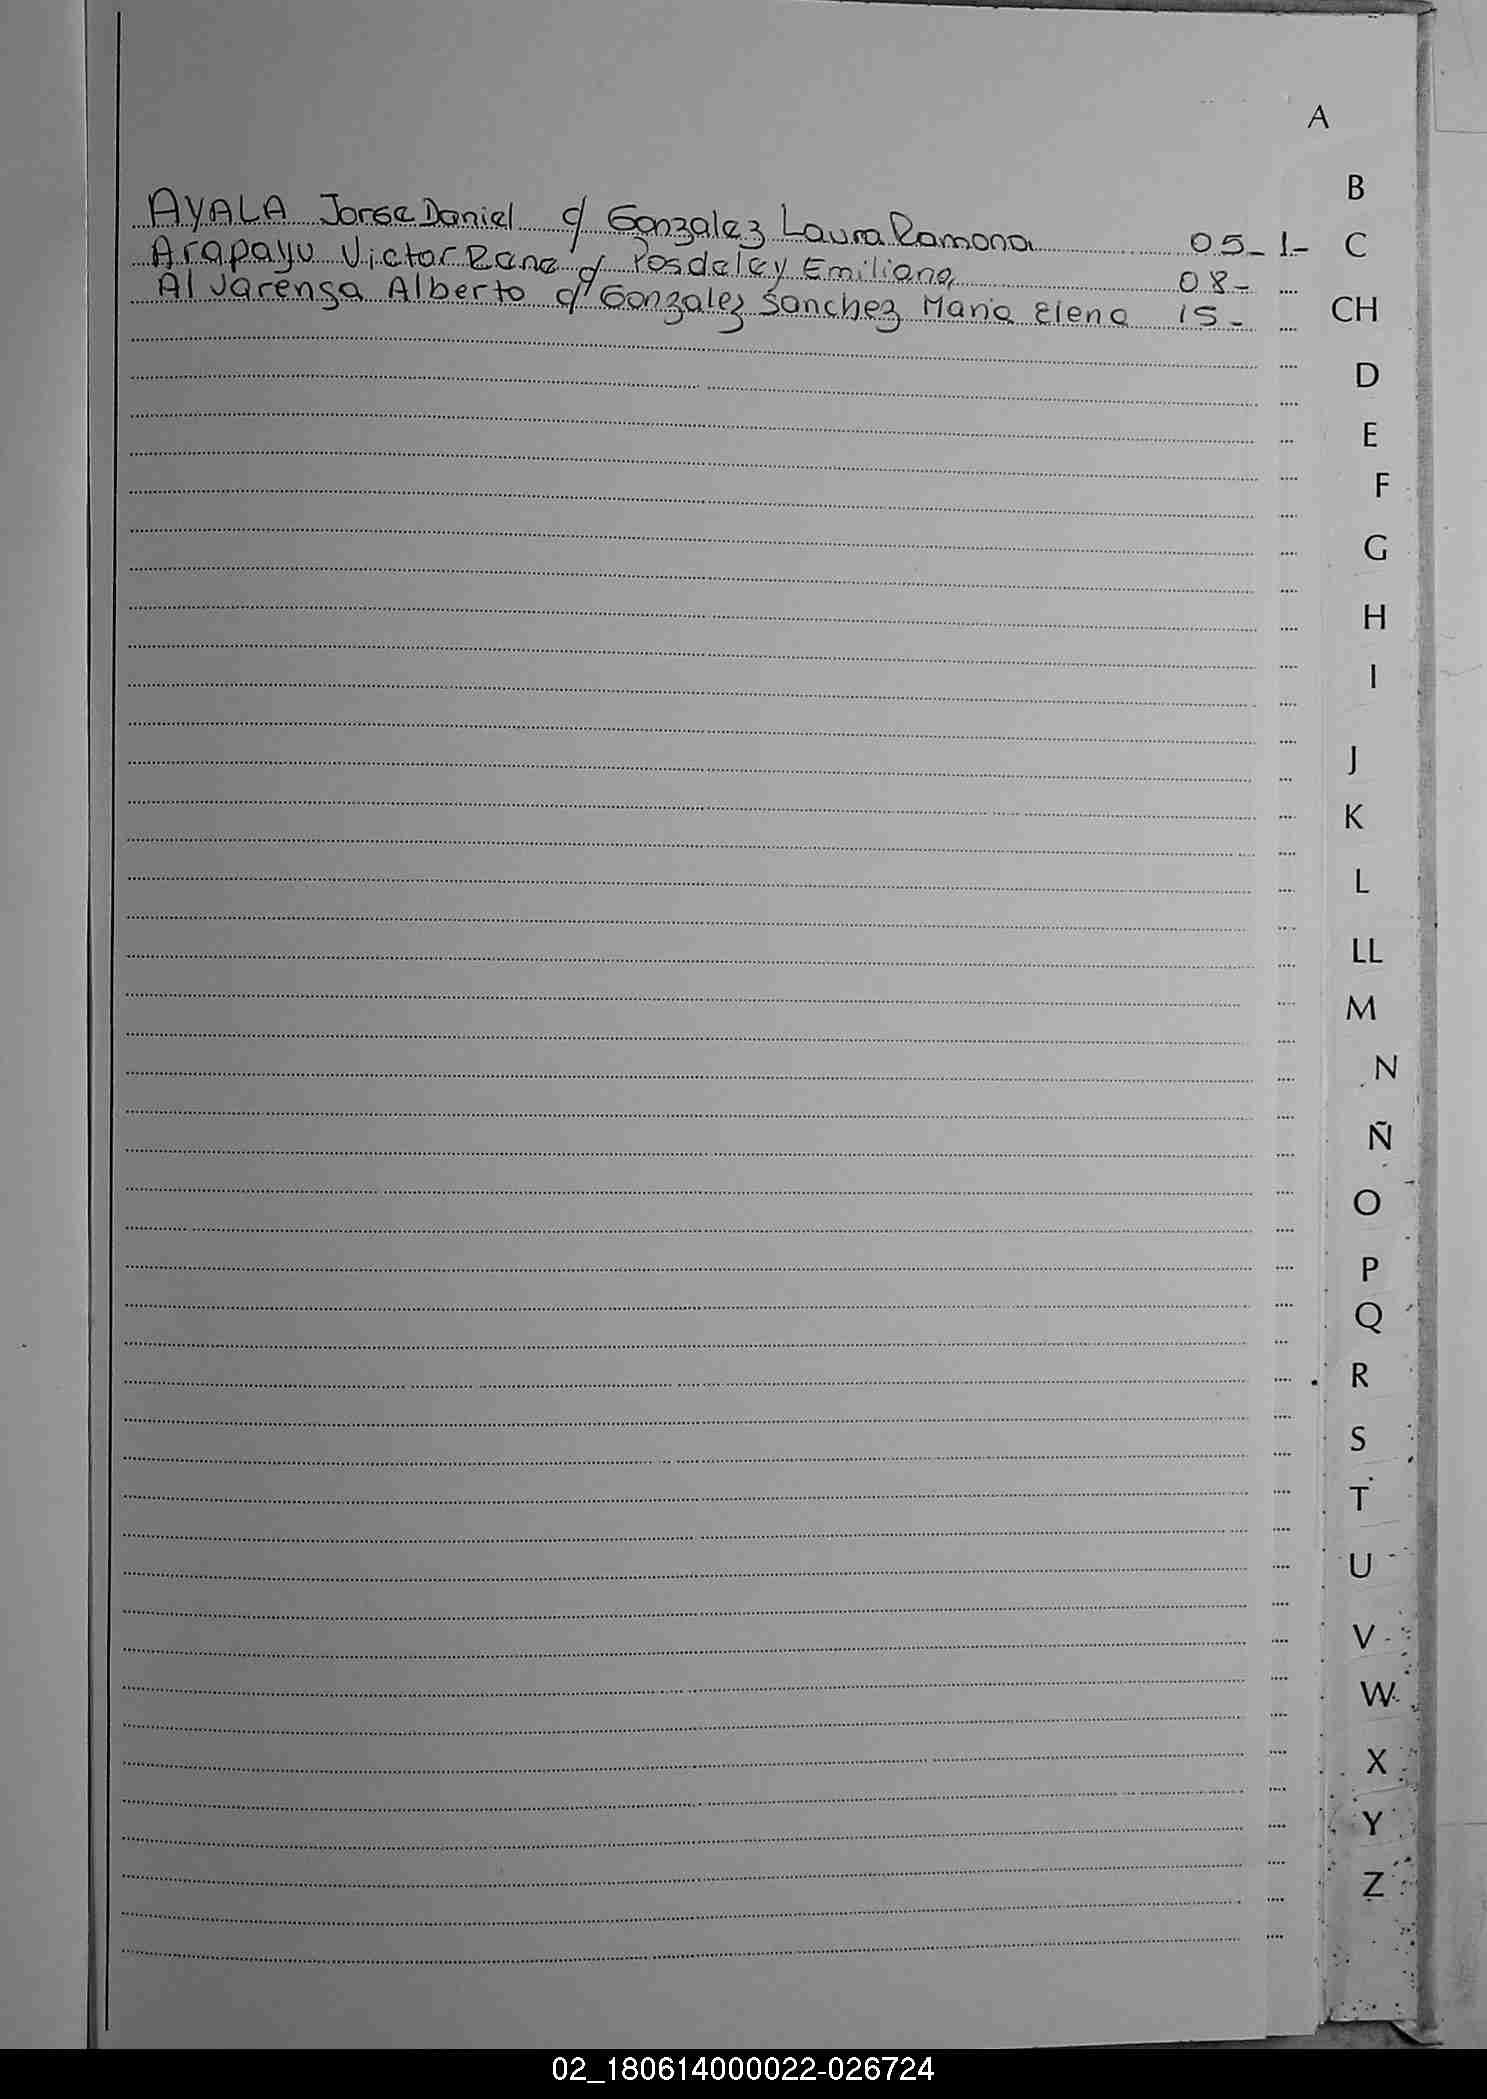 A
AYALA Jorge Daniel c/ Gonzalez Laura Ramona 05- 1-
Arapayu Victor Rene c/ Posdeley Emiliana 08-
Alvarenga Alberto c/ Gonzalez Sanchez Maria Elena 15-
B
C
CH
D
E
F
G
H
I
J
K
L
LL
M
N
Ñ
O
P
Q
R
S
T
U
V
W
X
Y
Z
02_180614000022-026724